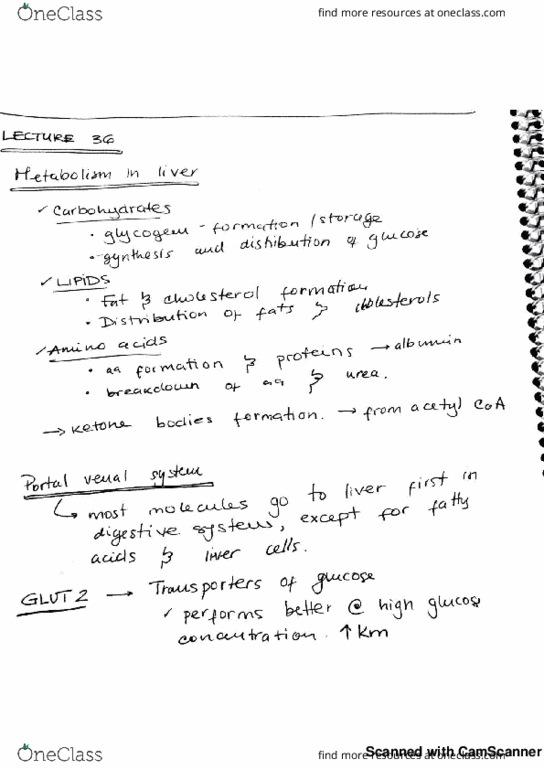 OneClass
find more resources at oneclass.com
LECTURE 36
Metabolism in liver
✓ Carbohydrates
• glycogen - formation / storage
• synthesis and distribution of glucose
✓ LIPIDS
• Fat & cholesterol formation
• Distribution of fats & cholesterols
✓ Amino acids
• aa formation & proteins → albumin
• breakdown of aa & urea.
→ Ketone bodies formation. → from acetyl CoA
Portal venal system
↳ most molecules go to liver first in
digestive system, except for fatty
acids & liver cells.
GLUT 2 → Transporters of glucose
✓ performs better @ high glucose
concentration. ↑ Km
OneClass
find more resources at oneclass.com
Scanned with CamScanner